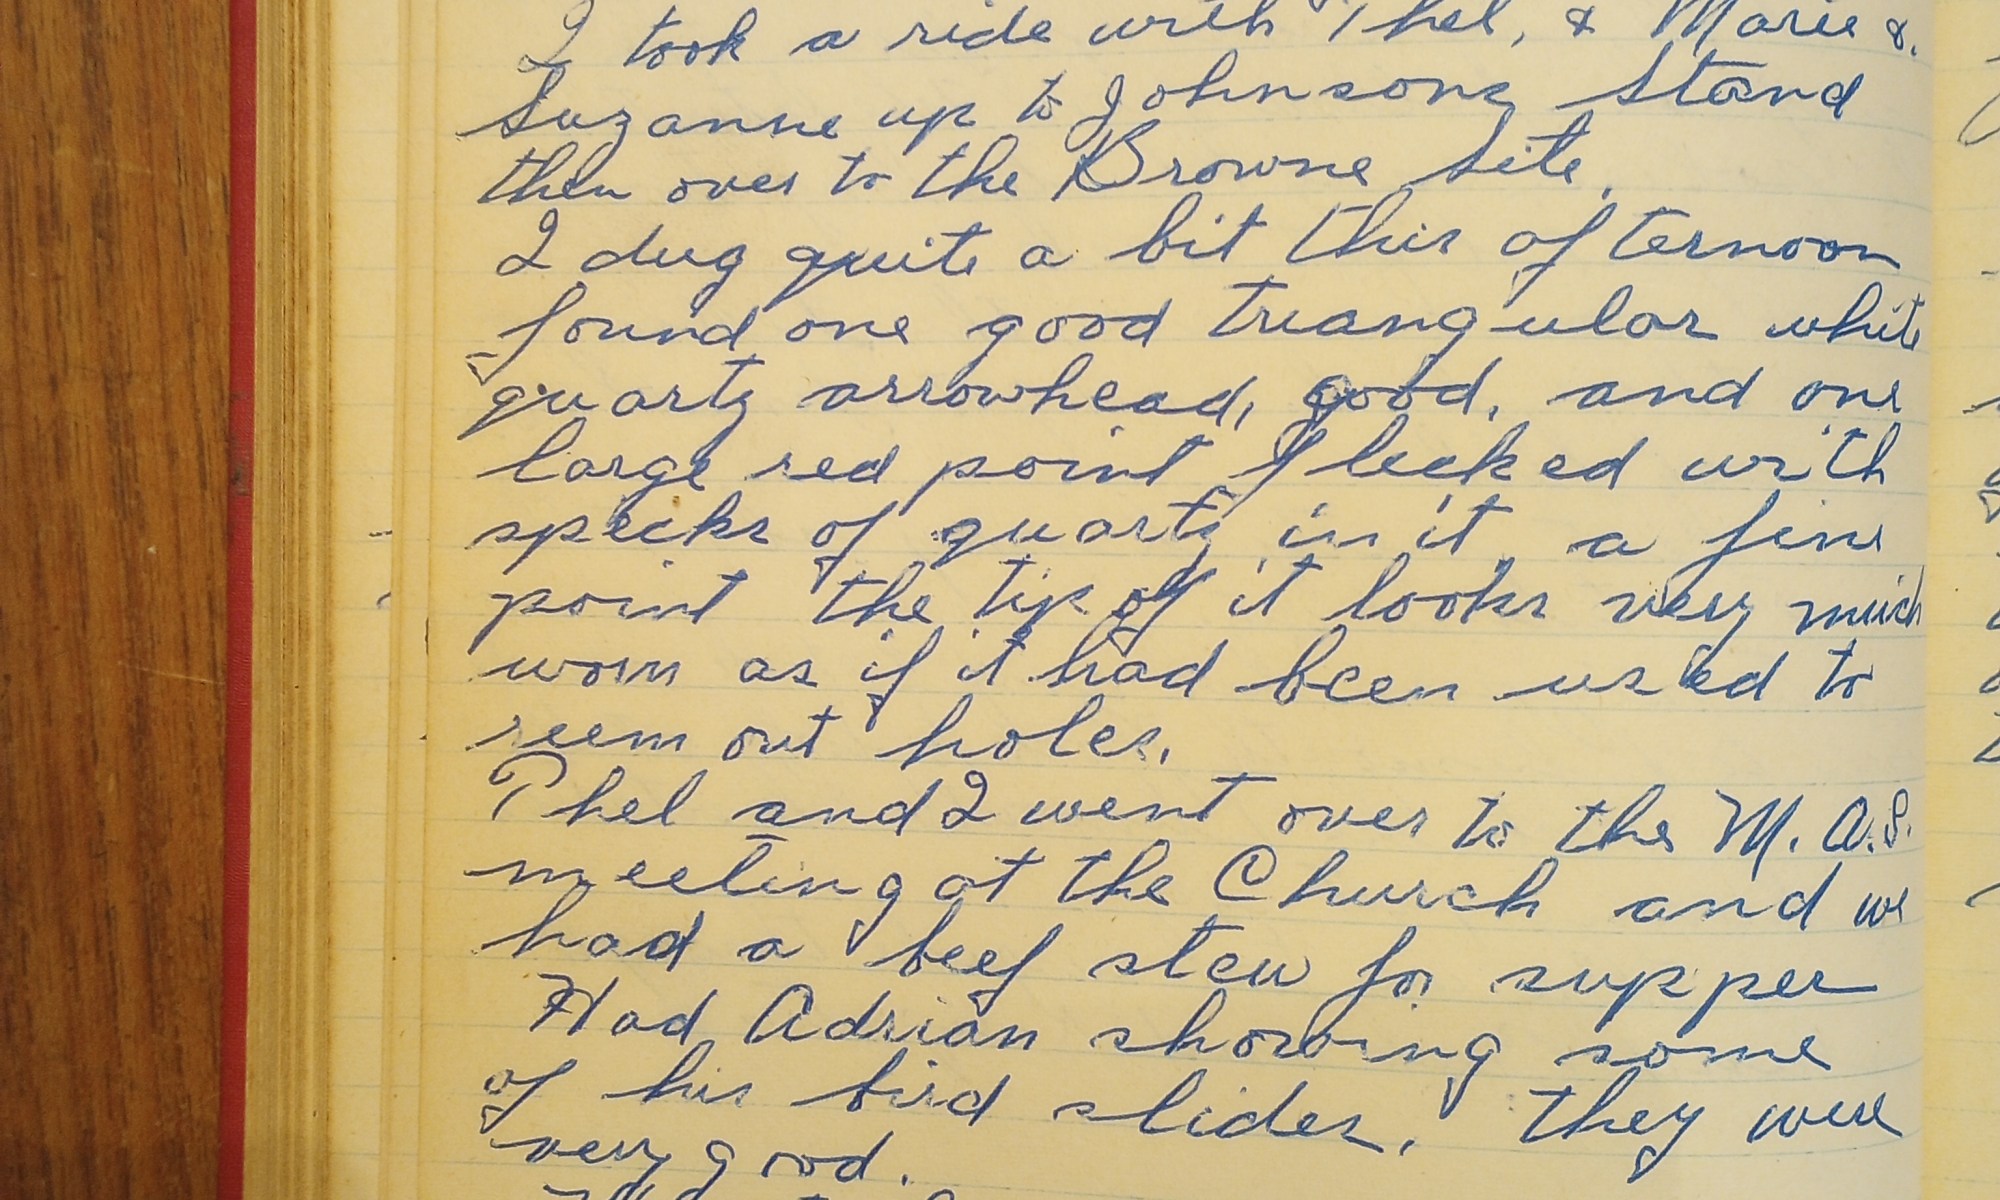 I took a ride with Thel, & Marie &.
Suzanne up to Johnsons Stand
then over to the Browne site.
I dug quite a bit this afternoon
found one good triangular white
quartz arrowhead, good, and one
large red point flecked with
specks of quartz in it, a fine
point the tip of it looks very much
worn as if it had been used to
reem out holes.
Thel and I went over to the M.A.S.
meeting at the Church and we
had a beef stew for supper
Had Adrian showing some
of his bird slides. They were
very good.